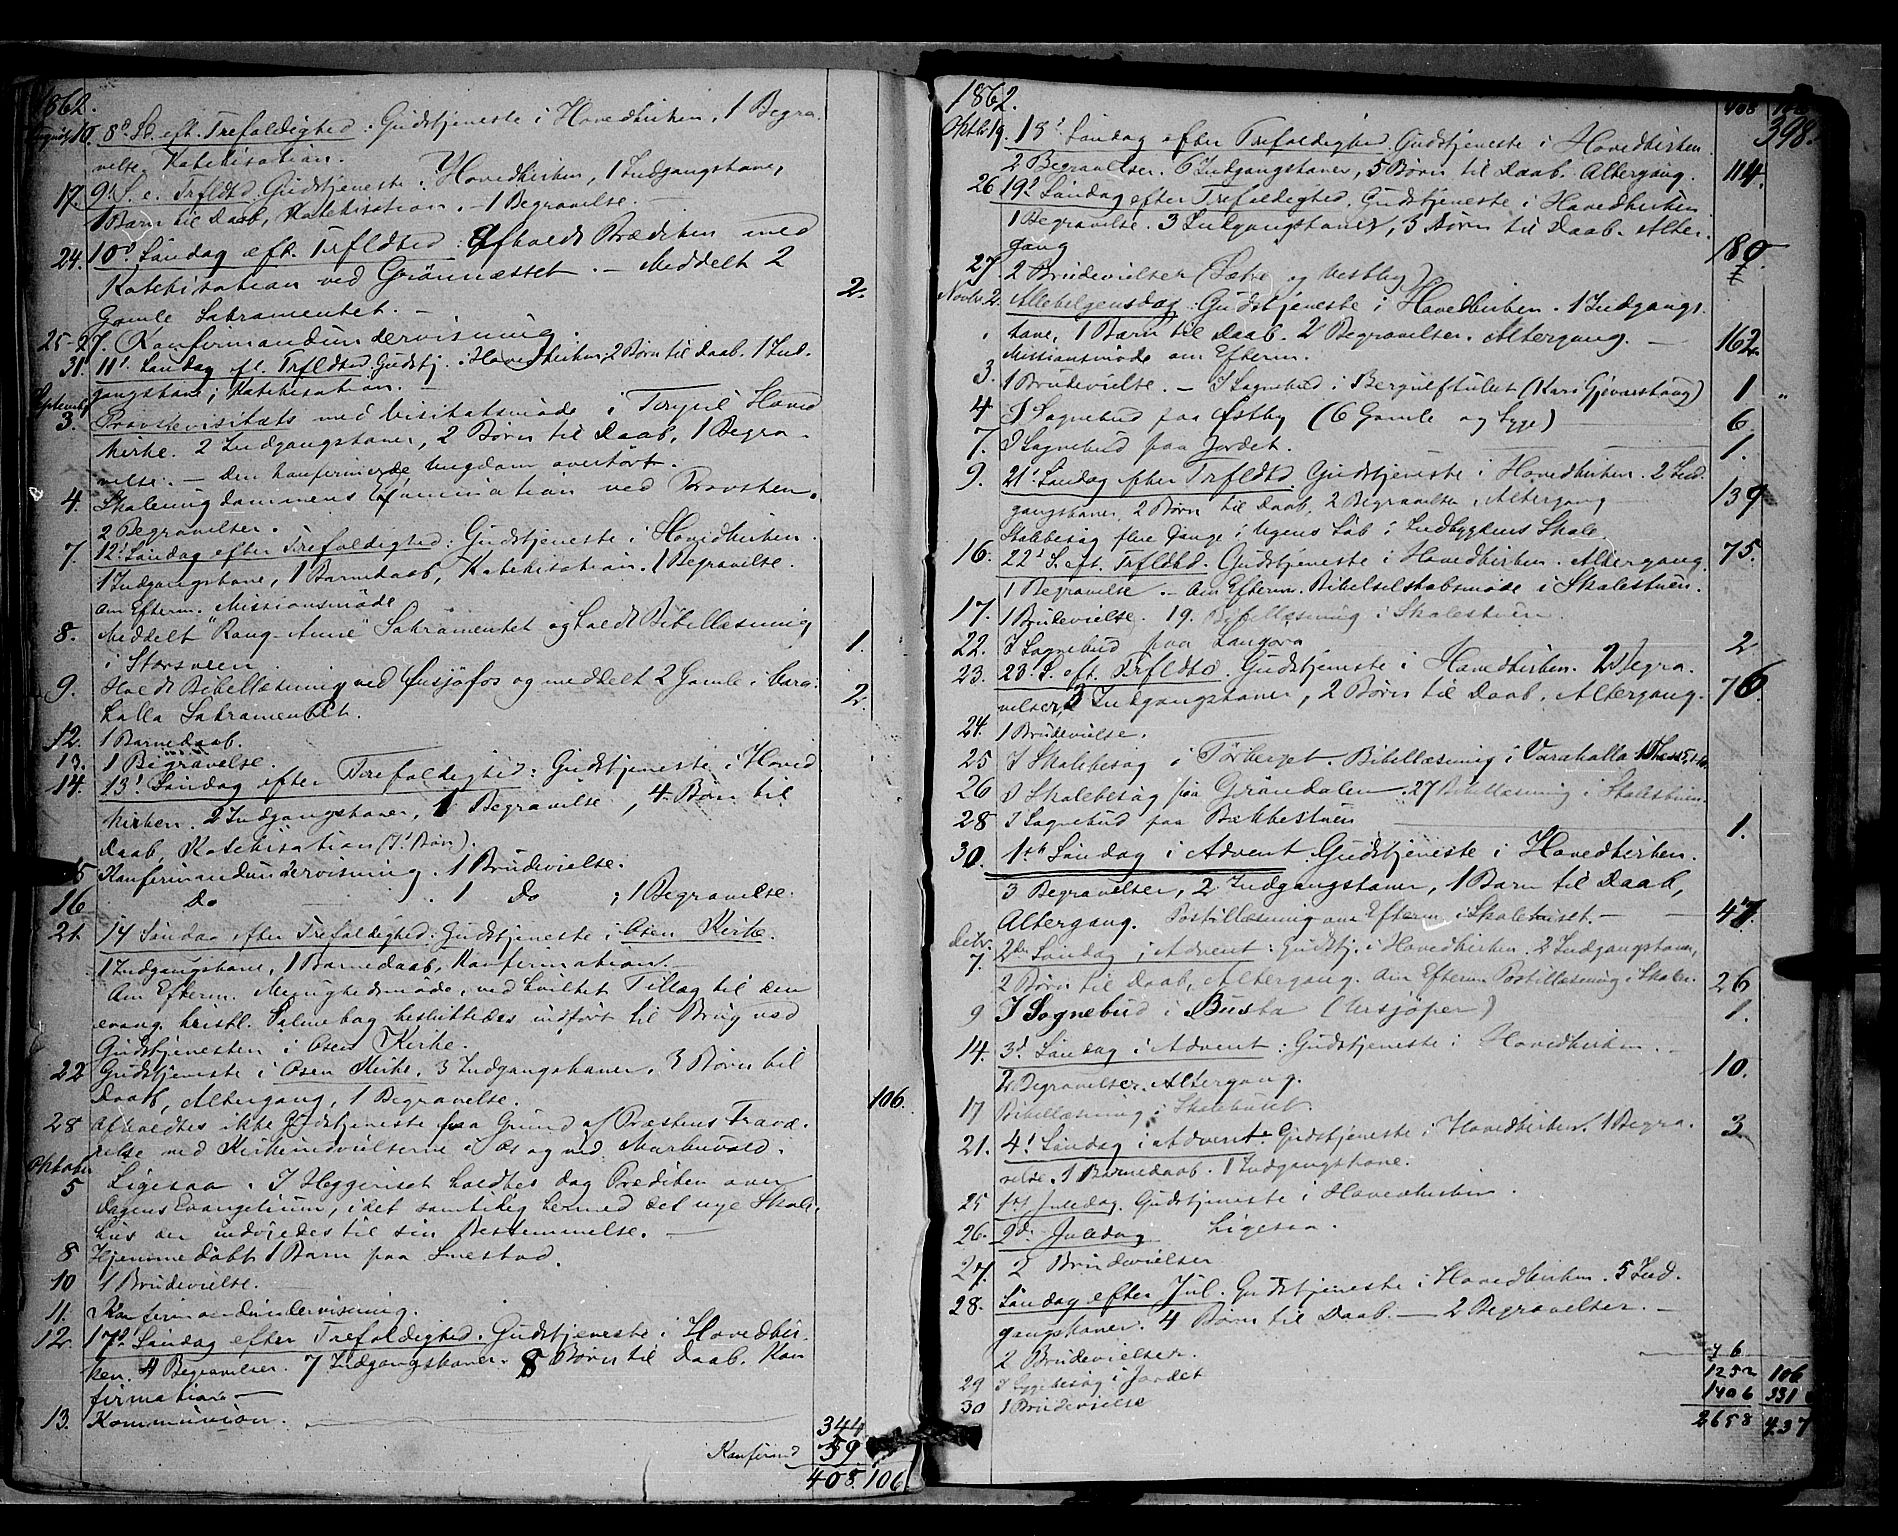 1862.
August 10. 8d S. eft. Trefoldighed. Gudstjeneste i Hovedkirken, 1 Begra-
velse. Katekisation.
17. 9d S. e. Trfldhd Gudstjeneste i Hovedkirken, 1 Indgangskone,
1 Barn til Daab, Katekisation. - 1 Begravelse. -
24. 10d Søndag eft. Trfldhed: Afholdt Prædiken med
Katekisation ved Grønnæsset. - Meddelt 2
Gamle Sakramentet. - 2.
25-27. Konfirmandundervisning.
31. 11t Søndag ef. Trfldhed Gudstj. i Hovedkirken, 2 Børn til Daab. 1 Ind-
gangskone; Katekisation. -
September 3. Provstevisitats med Visitatsmøde i Trysil Hoved
kirke. 2 Indgangskoner, 2 Børn til Daab, 1 Begra-
velse. - den konfirmerede Ungdom overhørt.
4. Skoleungdommens Examination ved Provsten.
2 Begravelser.
7. 12t Søndag efter Trefoldighed: Gudstjeneste i Hovedkirken.
1 Indgangskone, 1 Barnedaab, Katekisation. 1 Begravelse.
Om Efterm. Missionsmøde
8. Meddelt "Rang-Anne" Sakramentet og holdt Bibellæsning
i Storsveen. 1.
9. Holdt Bibellæsning ved Innsjøfos og meddelt 2 Gamle i Vara-
halla Sakramentet. 2.
12. 1 Barnedaab.
13. 1 Begravelse.
14. 13t Søndag efter Trefoldighed: Gudstjeneste i Hoved
kirken. 2 Indgangskoner, 1 Begravelse, 4 Børn til
Daab, Katekisation (7t Bøn).
15 Konfirmandundervisning. 1 Brudevielse.
16 Do . 1 Do ; 1 Begravelse.
21. 14 Søndag efter Trefoldighed: Gudstjeneste i Osen Kirke.
1 Indgangskone, 1 Barnedaab, Konfirmation. -
Om Efterm. Menighedsmøde, ved hvilket Tillæg til den
evang. kristl. Salmebog besluttedes indført til Brug ved
Gudstjenesten i Osen Kirke.
22 Gudstjeneste i Osen Kirke. 3 Indgangskoner. 3 Børn til
Daab, Altergang, 1 Begravelse. 106.
28 Afholdtes ikke Gudstjeneste paa Grund af Præstens Fravæ-
relse ved Kirkeindvielserne i Næs og ved
Oktober 5 Ligesaa. I Heggeriset holdtes dog Prædiken over
Dagens Evangelium, idet samtidig hermed det nye Skole-
hus der indviedes til sin Bestemmelse. -
8 Hjemmedøbt 1 Barn paa Smestad.
10 1 Brudevielse.
11. Konfirmandundervisning.
12. 17d Søndag efter Trefoldighed. Gudstjeneste i Hovedkir-
ken. 4 Begravelser. 7 Indgangskoner. 8 Børn til Daab. Kon
firmation -
13. Kommunion. 344
Konfirmand 59
405. 106
1862. 405 106 398.
Oktb. 19. 18d Søndag efter Trefoldighed Gudstjeneste i Hovedkirken
2 Begravelser. 6 Indgangskoner, 5 Børn til Daab. Altergang. 114.
26 19d Søndag efter Trefoldighed. Gudstjeneste i Hovedkirken
1 Begravelse. 3 Indgangskoner, 3 Børn til Daab. Alter-
gang 180.
27. 2 Brudevielser (Sæter og Vestby)
Novbr. 2. Allehelgensdag. Gudstjeneste i Hovedkirken. 1 Indgangs-
kone, 1 Barn til Daab. 2 Begravelser. Altergang. - 162.
Missionsmøde om Efterm.
3. 1 Brudevielse. - I Sognebud i (Kari Gjeværstang) 1 "
4 I Sognebud paa Østby (6 Gamle og Syge) 6.
7. I Sognebud paa Jordet. 1.
9. 21d Søndag efter Trfldhd. Gudstjeneste i Hovedkirken. 2 Ind-
gangskoner, 2 Børn til Daab, 2 Begravelser, Altergang 139
Skolebesøg flere Gange i Ugens Løb i Indbygdens Skole
16. 22d S. eft. Trfldhd. Gudstjeneste i Hovedkirken. Altergang. 75.
1 Begravelse. - Om Efterm. Bibelselskabsmøde i Skolestuen.
17. 1 Brudevielse. 19. Bibellæsning i Skolestuen.
22. I Sognebud paa Langøra 2
23. 23d S. eft. Trfldhd. Gudstjeneste i Hovedkirken. 2 Begra-
velser, 3 Indgangskoner, 2 Børn til Daab. Altergang. 76
24. 1 Brudevielse.
25 I Skolebesøg i Tørberget. Bibellæsning i Varahalla
26 I Skolebesøg paa Grøndalen. 27 Bibellæsning i Skolestuen.
28 I Sognebud paa Bækkestuen 1.
30. 1ste Søndag i Advent. Gudstjeneste i Hovedkirken.
3 Begravelser, 2 Indgangskoner, 1 Barn til Daab,
Altergang. Postillæsning om Efterm. i Skolehuset. - 47.
Decbr. 7. 2den Søndag i Advent: Gudstj. i Hovedkirken. 2 Indgangskoner,
2 Børn til Daab, Altergang. Om Efterm. Postillæsning i Skolen. 26
9 I Sognebud i Busta 1.
14. 3d Søndag i Advent: Gudstjeneste i Hovedkirken. -
2 Begravelser. Altergang. 10.
17 Bibellæsning i Skolehuset.
21. 4d Søndag i Advent. Gudstjeneste i Hovedkirken. 1 Begra- 3
velse. 1 Barnedaab. 1 Indgangskone.
25 1ste Juledag. Gudstjeneste i Hovedkirken.
26. 2d Juledag Ligesaa.
27. 2 Brudevielser
28. Søndag efter Jul. Gudstjeneste i Hovedkirken. 5 Ind-
gangskoner. 4 Børn til Daab. - 2 Begravelser. -
2 Brudevielser.
29 I Sygebesøg i Jordet
30 1 Brudevielse
1252 106
1406 331
2658 437